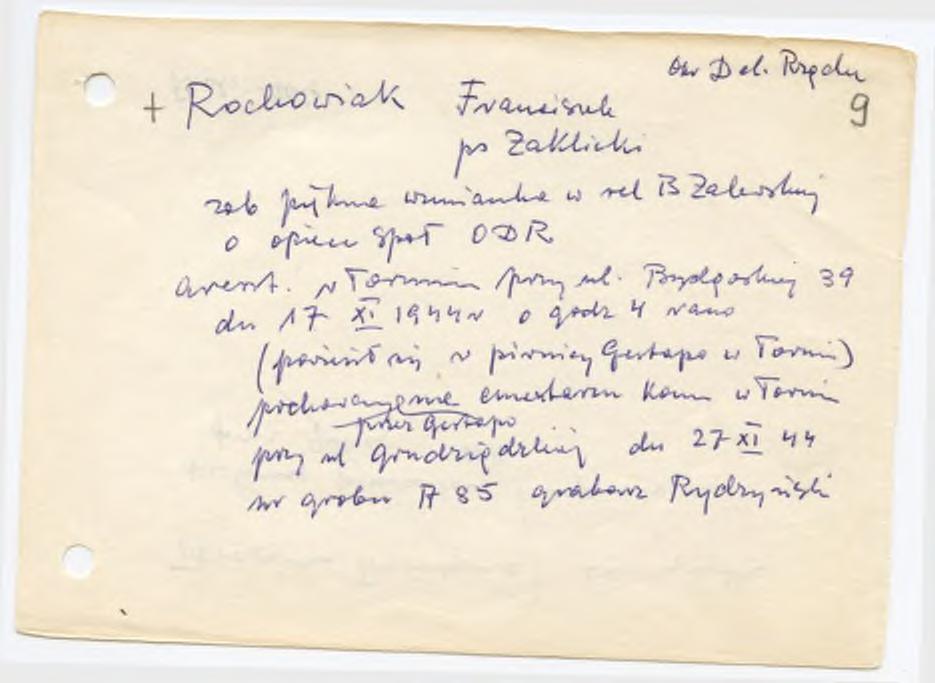 Okr Del. Rządu
9
+ Rochowiak Franciszek
ps Zaklicki
zob piękna wzmianka w rel B Zalewskiej
o opiece Społ ODR
areszt. w Toruniu przy ul. Bydgoskiej 39
dn 17 XI 1944 r o godz 4 rano
(powiesił się w piwnicy Gestapo w Toruniu)
pochowany na cmentarzu Kom w Toruniu
przez Gestapo
przy ul Grudziądzkiej dn 27 XI 44
nr grobu A 85 grabarz Rydzyński